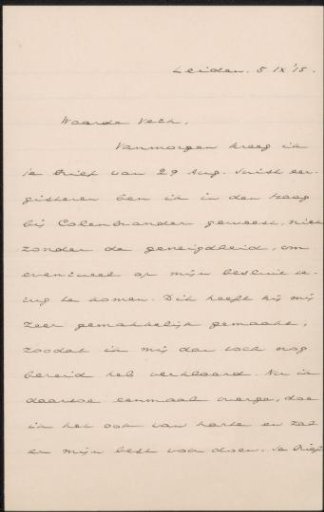 Leiden. 5 IX '15.
Waarde Veth.
Vanmorgen kreeg ik
je brief van 29 Aug. Juist eer-
gisteren ben ik in den Haag
bij Colenbrander geweest, niet
zonder de geneigdheid, om
eventueel op mijn besluit te-
rug te komen. Dit heeft hij mij
zeer gemakkelijk gemaakt,
zoodat ik mij dan toch nog
bereid heb verklaard. Nu ik
daartoe eenmaal overga, doe
ik het ook van harte en zal
er mijn best voor doen. Je brief